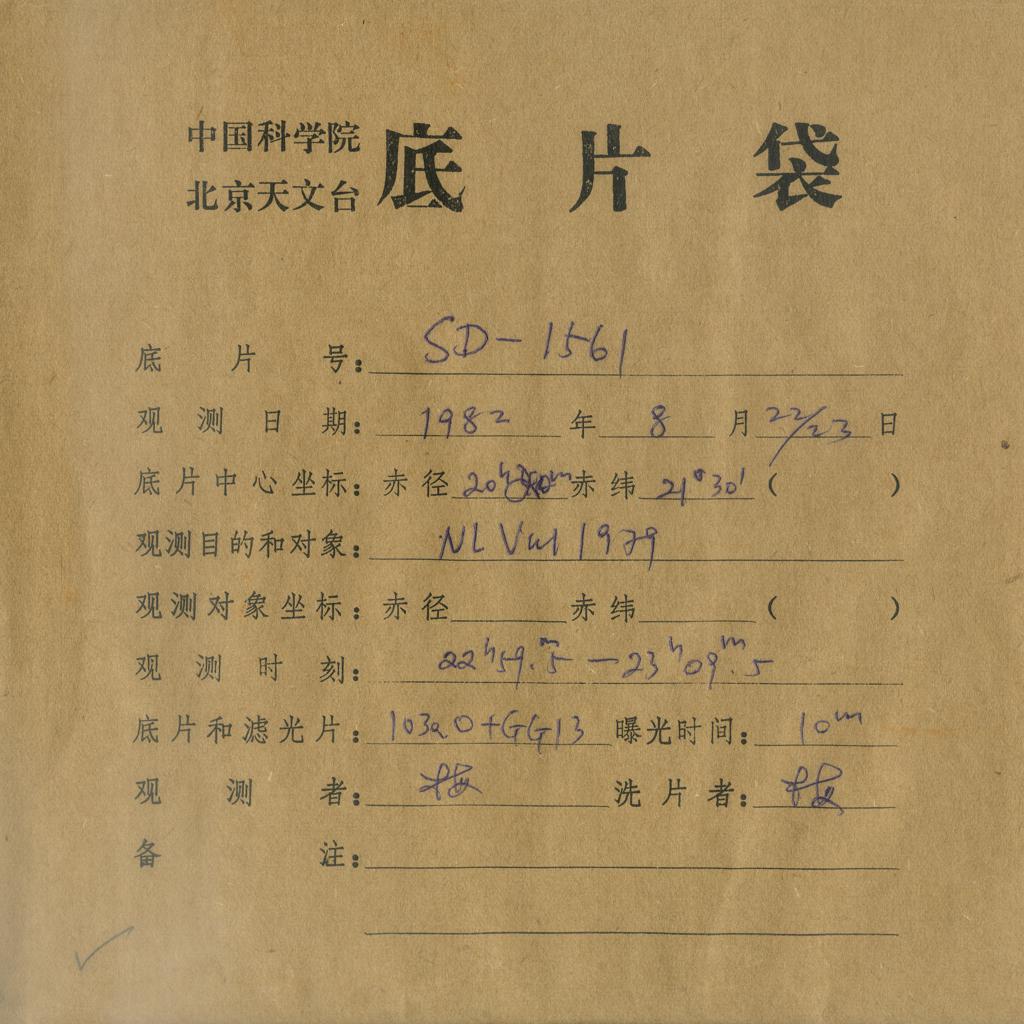 中国科学院
北京天文台
底片袋
底片号：SD-1561
观测日期：1982年8月22/23日
底片中心坐标：赤径20ʰ ᵐ赤纬21°30′（ ）
观测目的和对象：NL Vul 1979
观测对象坐标：赤径 赤纬 （ ）
观测时刻：22ʰ59.ᵐ5—23ʰ09ᵐ.5
底片和滤光片：103aO+GG13 曝光时间：10ᵐ
观测者：梅 洗片者：梅
备注：